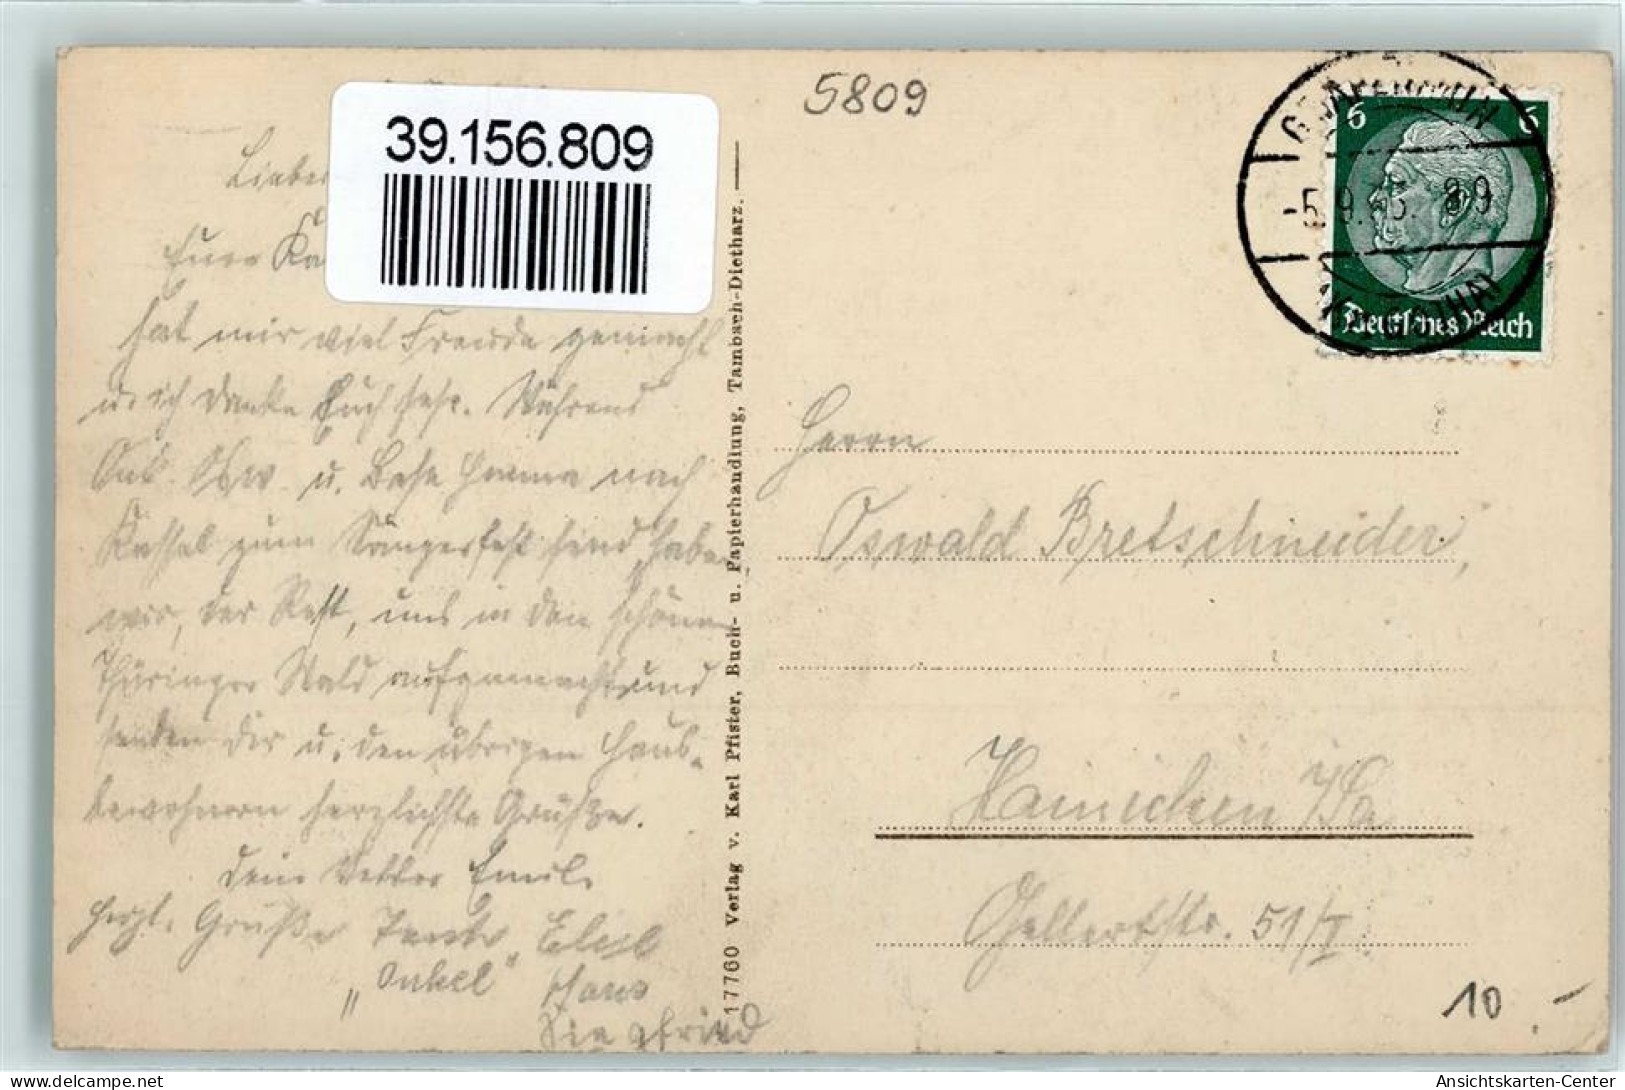 5809
39.156.809
Lieber
Eure Ka
hat mir viel Freude gemacht
u. ich danke Euch sehr. Während
u. nach
Kassel zum Sängerfest sind, haben
wir, der Rest, uns in den schönen
Thüringer Wald aufgemacht und
senden Dir u. den übrigen Haus-
bewohnern herzlichste Grüße.
Dein Vetter Emil.
Herzl. Grüße Tante
"Onkel" Hans
Siegfried
17760 Verlag v. Karl Pfister, Buch- u. Papierhandlung, Tambach-Dietharz.
GRÄFENHAIN
-5.9. 8-9
6 6
Deutsches Reich
Herrn
Oswald Bretschneider,
Hainichen /Sa
Gellertstr. 51/I.
10.-
AnsichtsKarten-Center
delcampe.net